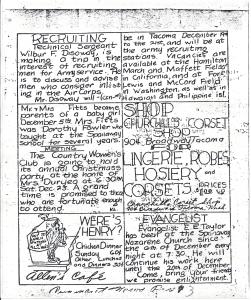 RECRUITING
Technical Sergeant
Wilbur F. Dadaway, is
making a trip in the
interest of recruiting
men for Army service. He
is to discuss and advise
men who consider enlist-
ing in the Air Corps.
Mr. Dadaway will
be in Tacoma December 14
to the 21st, and will be at
the army recruiting
stations. Vacancies are
available at the Hamilton
March and Moffett Field
in California, and at Fort
Lewis and McCord Field
in Washington, as well as in
Hawaiian and Philippine isl.
Mr & Mrs Fitts became
parents of a baby girl
December 5th. Mrs. Fitts
was Dorothy Fowler who
taught at the Spanaway
School for several years.
MEETING
The Country Women's
Club is going to hold
its annual Christmas
party at the home of
Mrs Duryea at 6:30 PM
Sat. Dec. 23. A grand
time is promised to those
who are fortunate enough
to attend.
SHADE
CHURCHILL'S CORSET
SHOP
904 Broadway Tacoma
LINGERIE, ROBES,
HOSIERY
CORSETS
PRICES
Corset Shop
WERE'S
HENRY?
Chicken Dinner
Sunday 60¢
Other Lunches
and Dinners 50¢
Allen's Cafe
EVANGELIST
Evangelist E.E. Taylor
has been at the Spanaway
Nazarene Church since
the of December every
night at 7:30. He will
continue his work here
until the 20th of December
Come, bring your friends
we promise enlightenment.